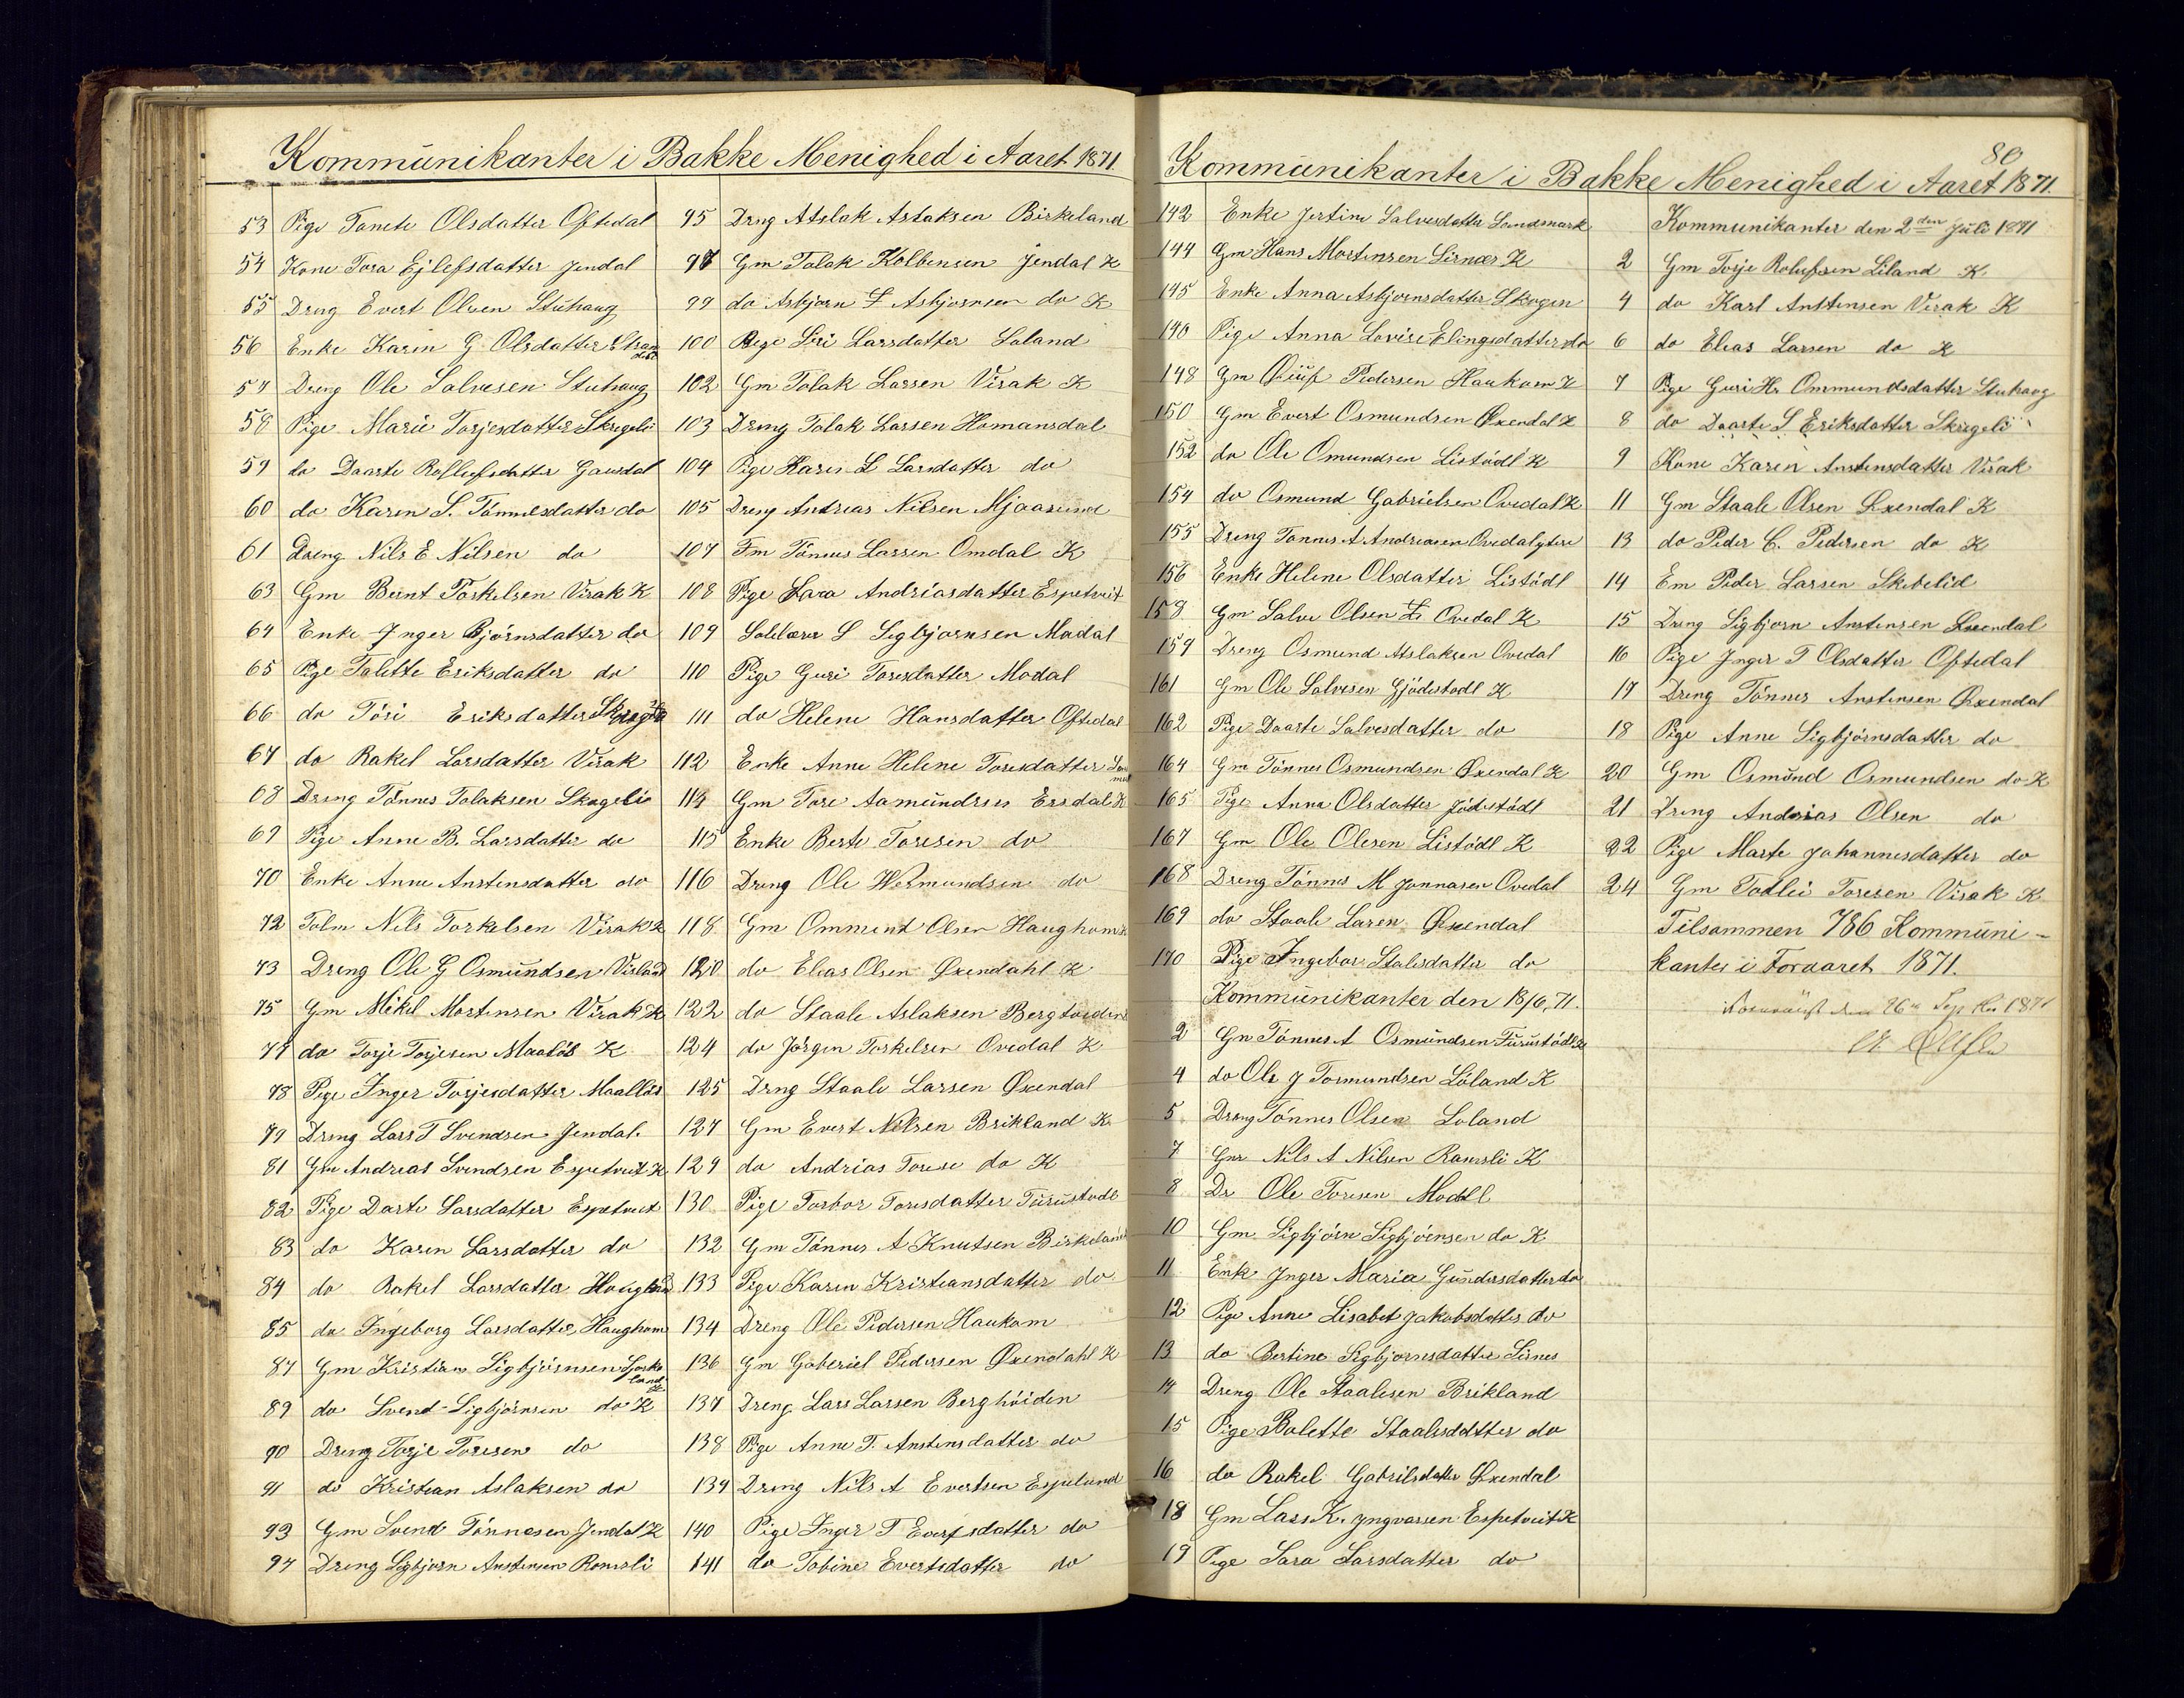 Kommunikanter i Bakke Menighed i Aaret 1871.
53 Pige Tanete Olsdatter Oftedal
54 Kone Tora Ejlefsdatter Jendal
55 Dreng Evert Olsen Stuhaug
56 Enke Karen G Olsdatter
57 Dreng Ole Salvesen Stuhaug
58 Pige Marie Torjesdatter Skregeli
59 do Daarte Rollefsdatter Gausdal
60 do Karen S. Tönnesdatter do
61 Dreng Nils E Nilsen do
63 Gm Beint Torkelsen Virak K
64 Enke Inger Bjørnsdatter do
65 Pige Talette Eriksdatter do
66 do Töri Eriksdatter
67 do Rakel Larsdatter Virak
68 Dreng Tönnes Tolaksen Skogeli
69 Pige Anne B. Larsdatter do
70 Enke Anne Anstensdatter do
72 Nils Torkelsen Virak K
73 Dreng Ole G Osmundsen
75 Gm Mikel Mortensen Virak K
77 do Torje Torjesen Maalös K
78 Pige Inger Torjesdatter Maallös
79 Dreng Lars T Svendsen Jendal.
81 Gm Andreas Svendsen Espetveit K
82 Pige Darte Larsdatter Espetveit
83 do Karen Larsdatter do
84 do Rakel Larsdatter
85 do Ingeborg Larsdatter Haughom
87 Gm Kristian Sigbjörnsen
89 do Svend Sigbjörnsen do K
90 Dreng Torje Toresen do
91 do Kristian Aslaksen do
93 Gm Svend Tönnesen Jendal K
94 Dreng Sigbjorn Anstensen Ramsli
95 Drng Atslak Aslaksen Birkeland
97 Gm Tolak Kolbensen Jendal K
99 do Asbjørn T Asbjornsen do K
100 Pige Siri Larsdatter Loland
102 Gm Tolak Larsen Virak K
103 Dreng Tolak Larsen Homansdal
104 Pige Karen L Larsdatter do
105 Dreng Andreas Nilsen Mjaasund
107 Fm Tönnes Larsen Omdal K
108 Pige Sara Andriasdatter Espetveit
109 S Sigbjornsen Modal
110 Pige Guri Toresdatter Modal
111 do Helene Hansdatter Oftedal
112 Enke Anne Helene Toresdatter
114 Gm Tore Aamundsen Ersdal K
115 Enke Berte Toresen do
116 Dreng Ole Wermundsen do
118 Gm Ommund Olsen Haughom K
120 do Elias Olsen Øxendahl K
122 do Staale Aslaksen
124 do Jörgen Torkelsen Ovedal K
125 Drng Staale Larsen Øxendal
127 Gm Evert Nilsen Brikland K.
129 do Andrias Torese do K
130 Pige Torbor Toresdatter Furustodl
132 Gm Tönnes A Knutsen Birkeland
133 Pige Karen Kristiansdatter do
134 Dreng Ole Pedersen Haukom
136 Gm Gaberiel Pedersen Øxendahl K
137 Dreng Lars Larsen Berghöiden
138 Pige Anne T. Anstensdatter do
139 Dreng Nils A Evertsen Espeland
140 Pige Inger T Evertsdatter do
141 do Tobine Evertsdatter do
80
Kommunikanter i Bakke Menighed i Aaret 1871.
142 Enke Jertine Salvesdatter Landmark
144 Gm Hans Mortensen Sirnæs K
145 Enke Anna Asbjornsdatter Skogen
146 Pige Anna Lovise Elingsdatter do
148 Gm Pedersen Haukom K
150 Gm Evert Osmundsen Øxendal K
152 do Ole Omundsen Listödl K
154 do Osmund Gabrielsen Ovedal K
155 Dreng Tönnes A Andreasen Ovedal
156 Enke Helene Olsdatter Listödl
158 Gm Salve Olsen Ovedal K
159 Dreng Osmund Atslaksen Ovedal
161 Gm Ole Salvesen Gjödestodl K
162 Pige Daarte Salvesdatter do
164 Gm Tönnes Osmundsen Øxendal K
165 Pige Anna Olsdatter Jödestödl
167 Gm Ole Olesen Listödl K
168 Dreng Tönnes M Jonnasen Ovedal
169 do Staale Laren Øxendal
170 Pige Ingebor Stalesdatter do
Kommunikanter den 18/6, 71.
2 Gm Tönnes A Osmundsen Furustödl K
4 do Ole J Tormundsen Löland K
5 Dreng Tönnes Olsen Loland
7 Gm Nils A Nilsen Ramsli K
8 Dr Ole Toresen Modal
10 Gm Sigbjörn Sigbjörnsen do K
11 Enk Inger Maria Gundersdatter do
12 Pige Anne Lisabet Jakobsdatter do
13 do Bertine Sigbjornsdatter Sirnes
14 Dreng Ole Staalesen Brikland
15 Pige Bolette Staalesdatter do
16 do Rakel Gabrilsdatter Øxendal
18 Gm Lars K. Yngvarsen Espetveit K
19 Pige Sara Larsdatter do
Kommunikanter den 2den Juli 1871
2 Gm Torje Rolufsen Liland K.
4 do Karl Anstensen Virak K
6 do Elias Larsen do K
7 Pige Guri H. Ommundsdatter Stuhaug
8 do Daarte S Eriksdatter Skregeli
9 Kone Karen Anstensdatter Virak
11 Gm Staale Olsen Øxendal K
13 do Peder C. Pedersen do K
14 Em Peder Larsen Skibelid
15 Dreng Sigbjorn Anstensen Øxendal
16 Pige Inger T Olsdatter Oftedal
17 Dreng Tönnes Anstensen Øxendal
18 Pige Anne Sigbjörnsdatter do
20 Gm Osmund Osmundsen do K
21 Dreng Andrias Olsen do
22 Pige Marte Johannesdatter do
24 Gm Todlei Toresen Virak K
Tilsammen 786 Kommuni-
kanter i Foraaret 1871.
den 26 1871